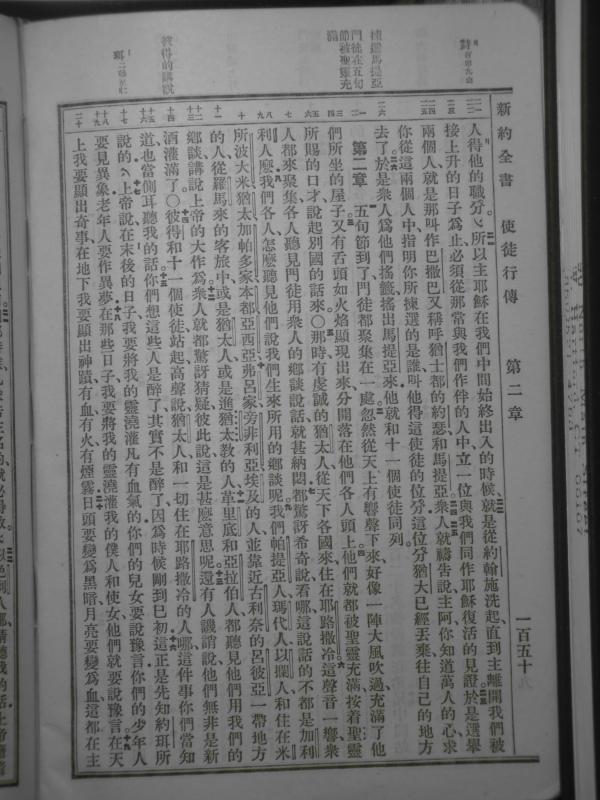 新約全書　使徒行傳　第二章　一百五十
人得他的職分、所以主耶穌在我們中間始終出入的時候、就是從約翰施洗起直到主離開我們被
接上升的日子爲止必須從那常與我們作伴的人中立一位與我們同作耶穌復活的見證於是選舉
兩個人就是那叫作巴撒巴又稱呼猶士都的約瑟和馬提亞衆人就禱告說主阿你知道萬人的心求
你從這兩個人中指明你所揀選的是誰叫他得這使徒的位分這位分猶大已經丟棄往自己的地方
去了於是衆人爲他們搖籤搖出馬提亞來他就和十一個使徒同列
第二章　五旬節到了門徒都聚集在一處忽然從天上有響聲下來好像一陣大風吹過充滿了他
們所坐的屋子又有舌頭如火焰顯現出來分開落在他們各人頭上他們就都被聖靈充滿按着聖靈
所賜的口才說起別國的話來○那時有虔誠的猶太人從天下各國來住在耶路撒冷這聲音一響衆
人都來聚集各人聽見門徒用衆人的鄉談說話就甚納悶都驚訝希奇說看哪這說話的不都是加利
利人麼我們各人怎麼聽見他們說我們生來所用的鄉談呢我們帕提亞人瑪代人以攔人和住在米
所波大米猶太加帕多家本都亞西亞弗呂家旁非利亞埃及的人並靠近古利奈的呂彼亞一帶地方
的人從羅馬來的客旅中或是猶太人或是進猶太教的人革里底和亞拉伯人都聽見他們用我們的
鄉談講說上帝的大作爲衆人就都驚訝猜疑彼此說這是甚麼意思呢還有人譏誚說他們無非是新
酒灌滿了○彼得和十一個使徒站起高聲說猶太人和一切住在耶路撒冷的人哪這件事你們當知
道也當側耳聽我的話你們想這些人是醉了其實不是醉了因爲時候剛到巳初這正是先知約珥所
說的、上帝說在末後的日子我要將我的靈澆灌凡有血氣的你們的兒女要說豫言你們的少年人
要見異象老年人要作異夢在那些日子我要將我的靈澆灌我的僕人和使女他們就要說豫言在天
上我要顯出奇事在地下我要顯出神蹟有血有火有煙霧日頭要變爲黑暗月亮要變爲血這都在主
揀選馬提亞
門徒在五旬
節被聖靈充
滿
彼得的講說